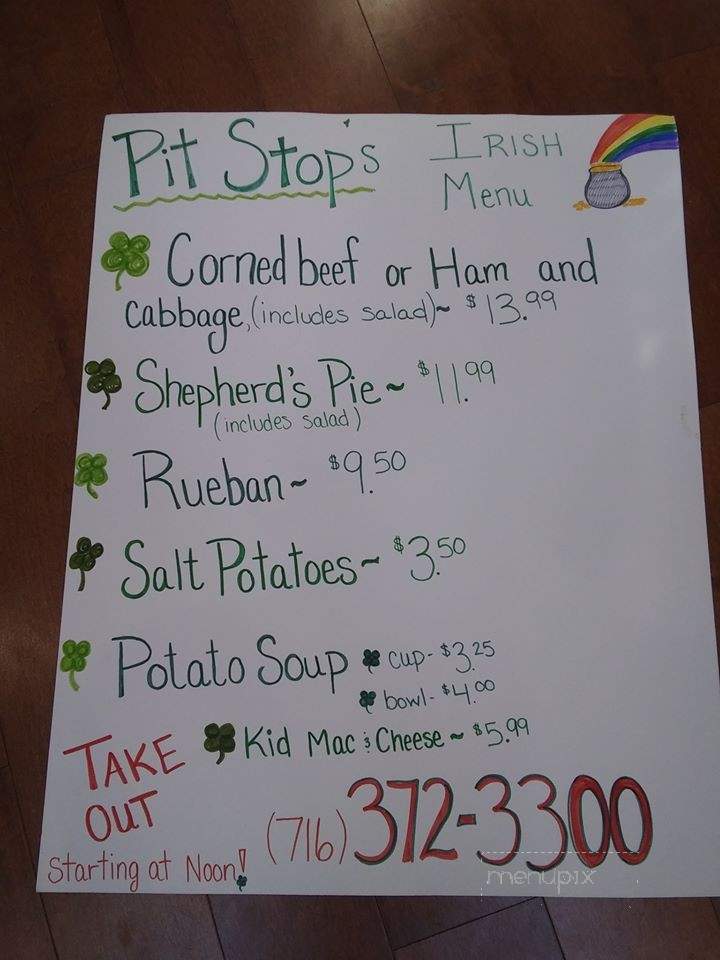 Pit Stop's
IRISH
Menu
Corned beef or Ham and
cabbage, (includes salad)~ $13.99
Shepherd's Pie~ $11.99
(includes salad)
Rueban~ $9.50
Salt Potatoes~ $3.50
Potato Soup cup- $3.25
bowl- $4.00
Kid Mac & Cheese ~ $5.99
TAKE
OUT
Starting at Noon!
(716) 372-3300
menupix